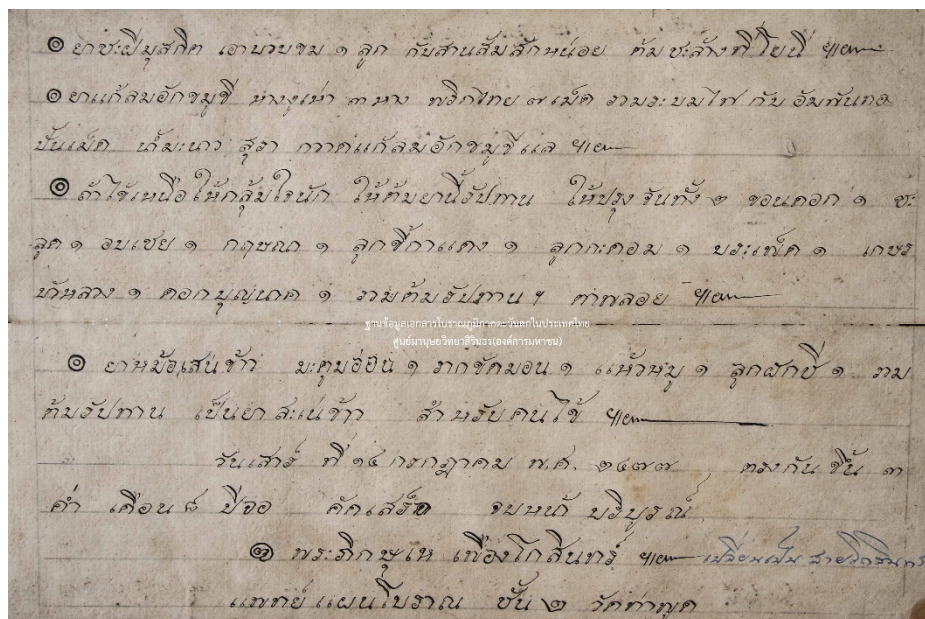 ๏ ยาชะฝีมุสกิต เอาบวบขม ๑ ลูก กับสานส้มสักหน่อย ต้มชะล้างที่โยนี ฯเอม
๏ ยาแก้ลมอักขมูขี หางงูเห่า ๓ หาง พริกไทย ๗ เม็ด รามระบมไฟ กับ อัมพันทอง
ปั้นเม็ด น้ำมะนาว สุรา กวาดแก้ลมอักขมูขีแล ฯเอม
๏ ถ้าไข้เหนือให้กลุ้มใจนัก ให้ต้มยานี้รับทาน ให้ปรุง จันทั้ง ๒ ขอนดอก ๑ ชะ
ลูด ๑ อบเชย ๑ กฤษณา ๑ ลูกขี้กาแดง ๑ ลูกกะดอม ๑ บระเพ็ด ๑ เกษร
บัวหลวง ๑ ดอกบุญนาค ๑ รวมต้มรับทาน ฯ ตำพลอย ฯเอม
ฐานข้อมูลเอกสารโบราณภูมิภาคตะวันตกในประเทศไทย
ศูนย์มานุษยวิทยาสิรินธร(องค์การมหาชน)
๏ ยาหม้อเสน่ข้าว มะตูมอ่อน ๑ รากขัดมอน ๑ แห้วหมู ๑ ลูกผักชี ๑ รวม
ต้มรับทาน เป็นยาสะเน่ข้าว สำหรับคนไข้ ฯเอม
วันเสาร์ ที่ ๑๔ กรกฎาคม พ.ศ. ๒๔๗๗ ตรงกัน ขึ้น ๓
ค่ำ เดือน ๘ ปีจอ คัดเสร็จ จบหน้า บริบูรณ์
๏ พระภิกษุเห เนื่องโกสินทร์ ฯเอม เปลี่ยนเป็น
แพทย์แผนโบราณ ชั้น ๒ วัดท่าพูด